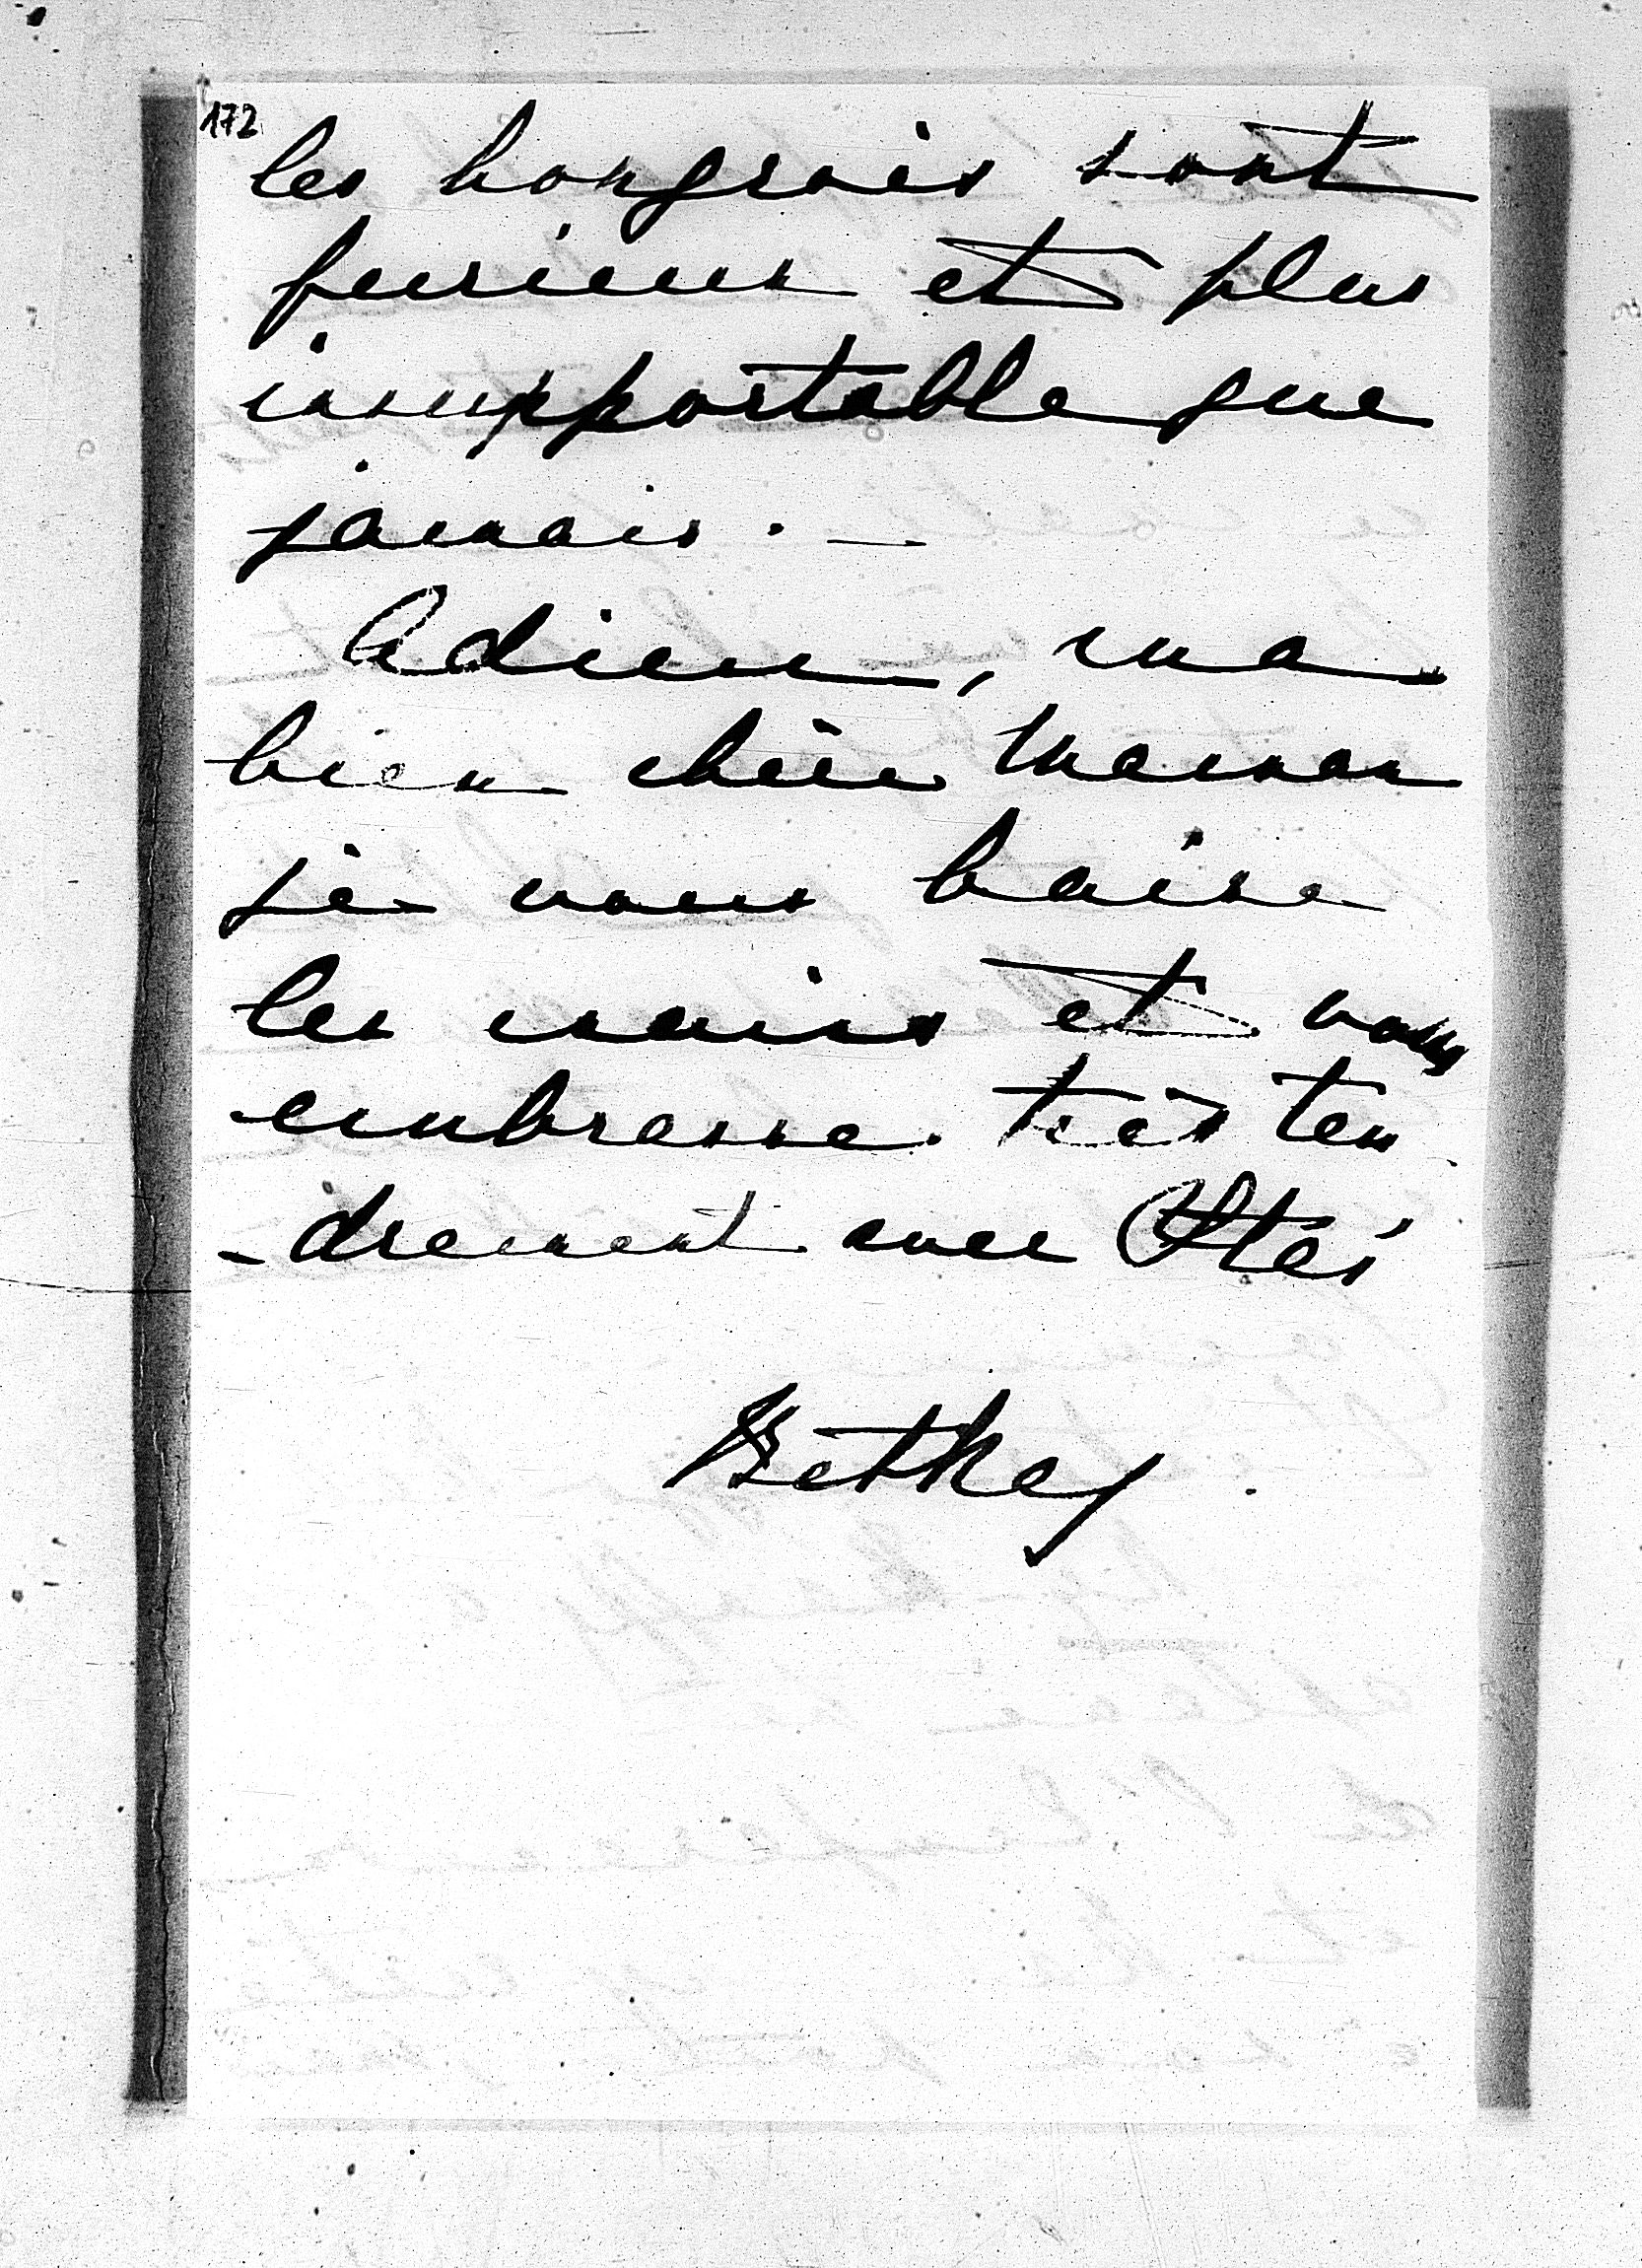 172
les hongrois sont
furieux et plus
insupportable que
jamais. —
Adieu, ma
bien chère Maman
je vous baise
les mains et vous
embrasse très ten
-drement avec
Bethey.